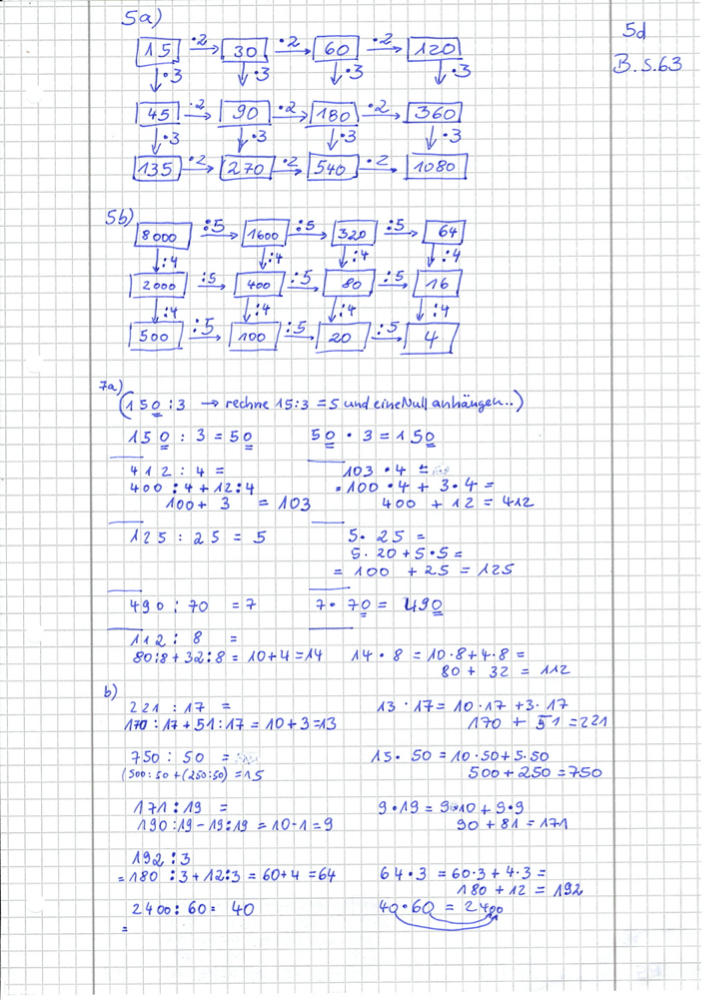 5a)
5d
15 ·2 → 30 ·2 → 60 ·2 → 120
B.S.63
↓·3 ↓·3 ↓·3 ↓·3
45 ·2 → 90 ·2 → 180 ·2 → 360
↓·3 ↓·3 ↓·3 ↓·3
135 ·2 → 270 ·2 → 540 ·2 → 1080
5b)
8000 :5 → 1600 :5 → 320 :5 → 64
↓:4 ↓:4 ↓:4 ↓:4
2000 :5 → 400 :5 → 80 :5 → 16
↓:4 ↓:4 ↓:4 ↓:4
500 :5 → 100 :5 → 20 :5 → 4
7a)
(150:3 → rechne 15:3=5 und eine Null anhängen..)
150 : 3 = 50 50 · 3 = 150
412 : 4 = 103 · 4 =
400 : 4 + 12:4 ·100 · 4 + 3·4 =
100 + 3 = 103 400 + 12 = 412
125 : 25 = 5 5· 25 =
5· 20 + 5·5 =
= 100 + 25 = 125
490 : 70 = 7 7· 70 = 490
112 : 8 =
80:8 + 32:8 = 10+4 =14 14 · 8 = 10·8+4·8 =
80 + 32 = 112
b)
221 : 17 = 13 · 17 = 10·17 +3·17
170 : 17 + 51 : 17 = 10+3=13 170 + 51 =221
750 : 50 = 15· 50 = 10·50+5·50
(500:50 + (250:50) = 15 500+250=750
171 : 19 = 9·19 = 9·10 + 9·9
190:19 – 19:19 = 10-1 = 9 90 + 81 = 171
192 : 3
= 180 : 3 + 12:3 = 60+4 = 64 64·3 = 60·3 + 4·3 =
180 + 12 = 192
2400: 60 = 40 40·60 = 2400
=